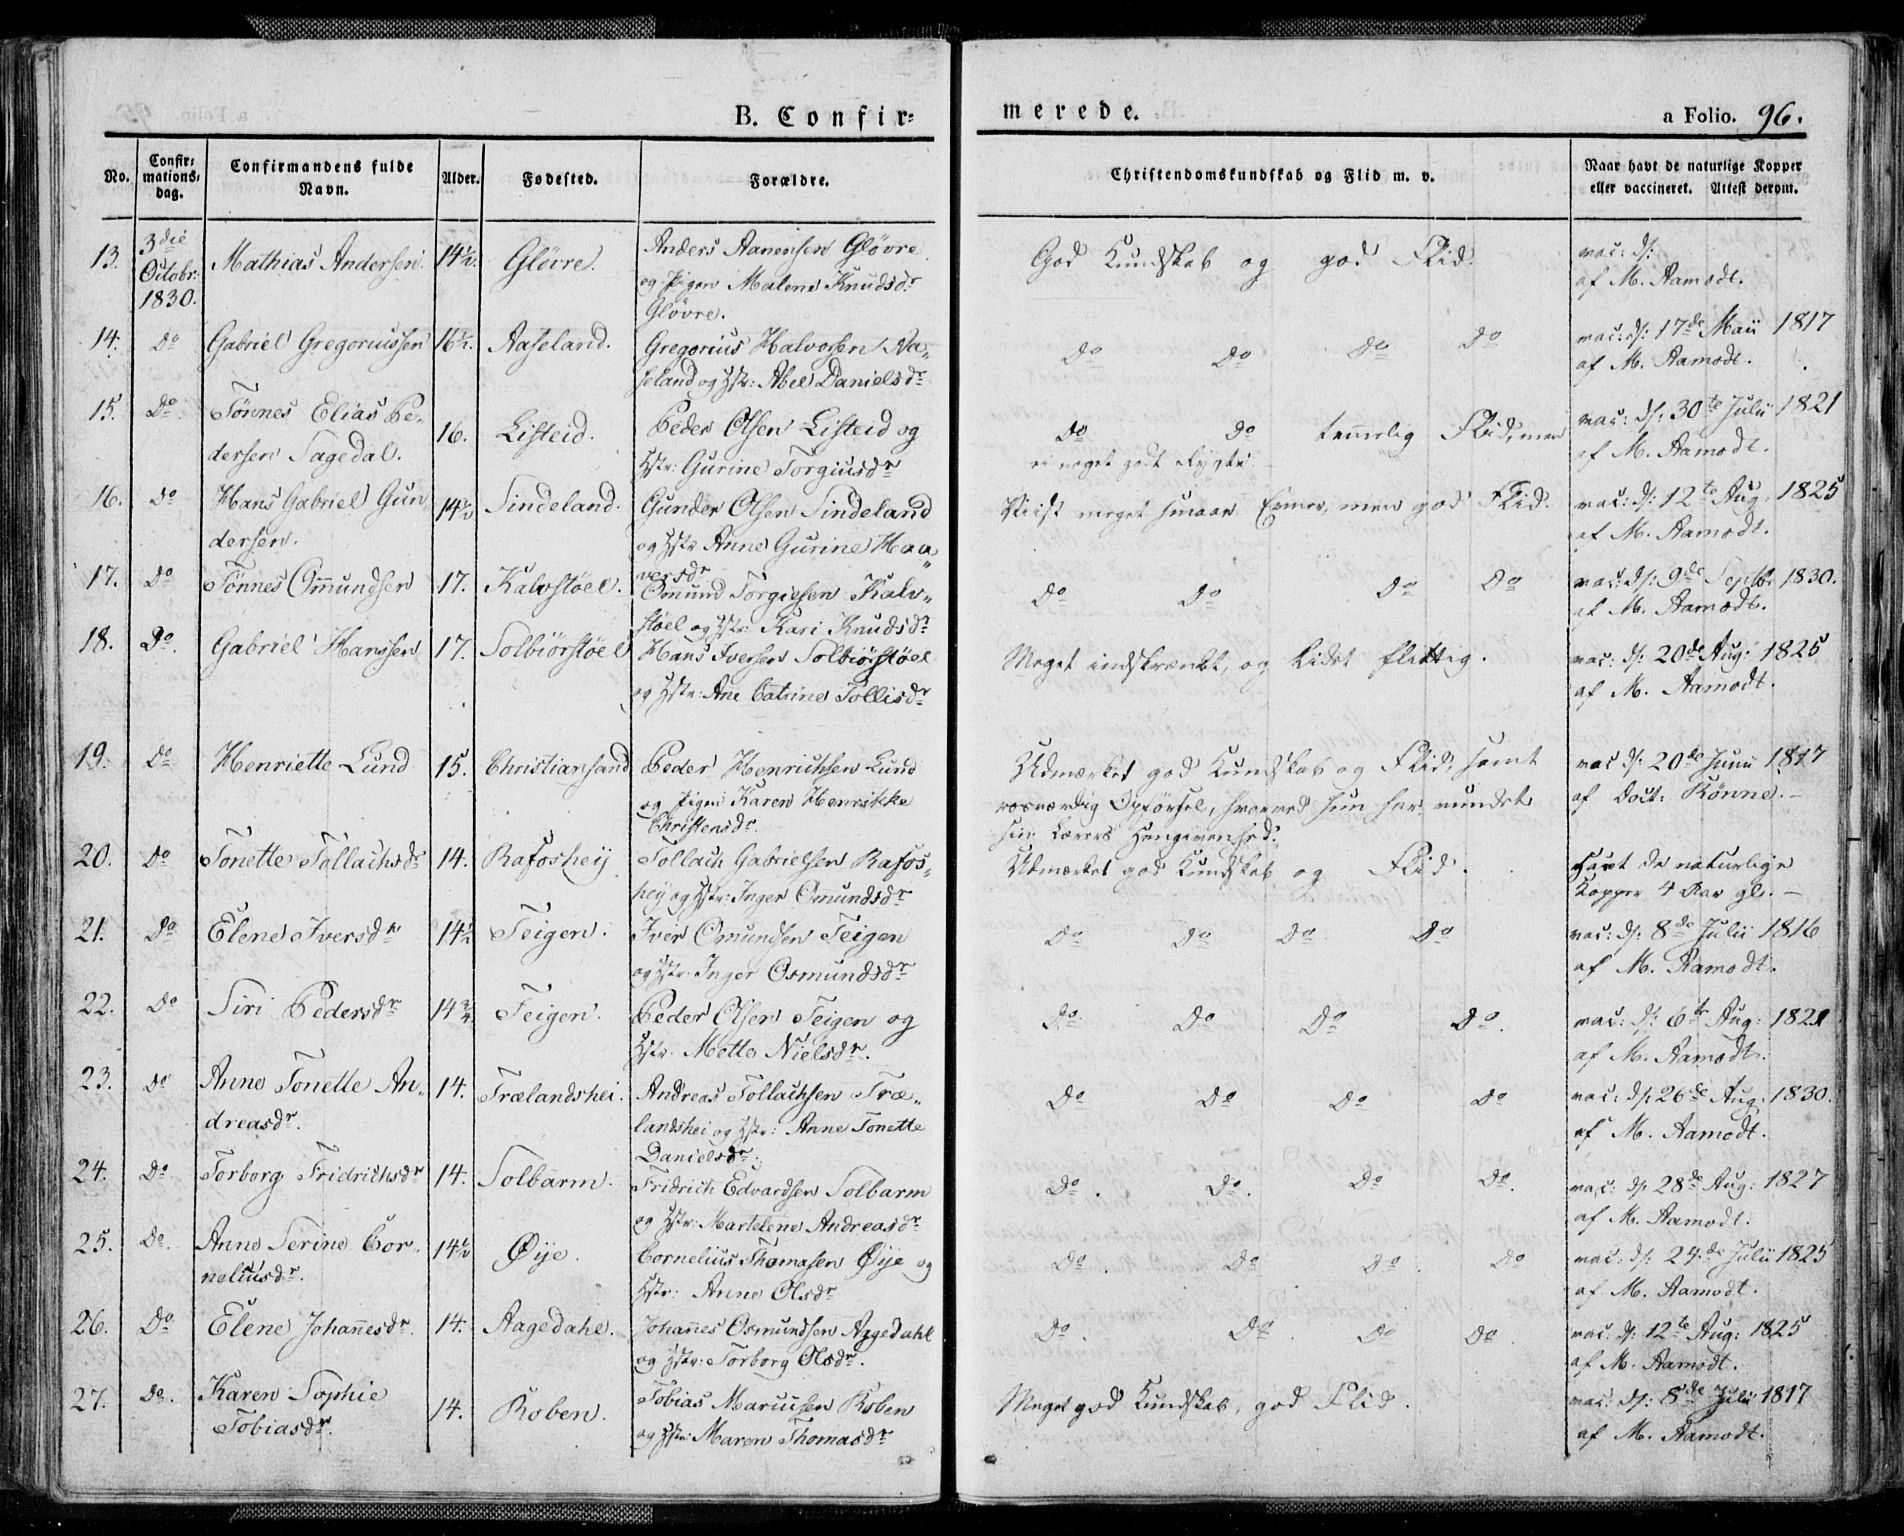 B. Confir=
merede.
a Folio. 96.
No.
Confir=
mations=
dag.
Confirmandens fulde
Navn.
Alder.
Fødested.
Forældre.
Christendomskundskab og Flid m. v.
Naar havt de naturlige Kopper
eller vaccineret. Attest derom.
13. 3die Octobr: 1830. Mathias Andersen. 14½. Gløvre.
Anders Aanensen Gløvre
og Pigen Malene Knudsdr
Gløvre.
God Kundskab og god Flid.
vac: d:
af M. Aamodt.
14. Do Gabriel Gregoriussen 16½. Aaseland.
Gregorius Halvorsen Aa„
seland og Hstr: Abel Danielsdr
Do Do Do Do
vac: d: 17de Maii 1817
af M. Aamodt.
15. Do. Tønnes Elias Pe-
dersen Sagedal. 16. Listeid.
Peder Olsen Listeid og
Hstr: Gurine Torgiusdr
Do Do temelig Flid, men
ei noget godt Rygte.
vac: d: 30te Julii 1821
af M. Aamodt.
16. Do Hans Gabriel Gun
dersen. 14½ Sindeland.
Gunder Olsen Sindeland
og Hstr Anne Gurine Haa„
versdr
Viist meget smaae Evner, men god Flid.
vac: d: 12te Aug: 1825
af M. Aamodt.
17. Do Tønnes Omundsen 17. Kalvstøel.
Omund Torgiesen Kalv„
støel og Hstr: Kari Knudsdr
Do Do Do Do
vac: d: 9de Septbr 1830.
af M. Aamodt.
18. Do. Gabriel Hanssen 17. Solbiørstøel
Hans Iversen Solbiørstøel
og Hstr: Ane Catrine Tollisdr
Meget indskrænket, og lidet flittig.
vac: d: 20de Aug: 1825
af M. Aamodt.
19. Do Henriette Lund 15. Christiansand
Peder Henrichsen Lund
og Pigen Karen Henrikke
Christensdr.
Udmærket god Kundskab og Flid, samt
rosværdig Opførsel, hvorved hun har vundet
sin Lærers Hengivenhed.
vac d: 20de Junii 1817
af Doct: Rönne.-
20. Do Tonette Tollachsdr 14. Rafoshey
Tollach Gabrielsen Rafos„
hey og Hstr: Inger Omundsdr
Udmærket god Kundskab og Flid.
Havt de naturlige
Kopper 4 Aar gl.-
21. Do Elene Iversdr 14½ Teigen.
Iver Omundsen Teigen
og Hstr. Inger Osmundsdr
Do Do Do Do
vac: d: 8de Julii 1816
af M. Aamodt.
22. Do Siri Pedersdr 14¾. Teigen.
Peder Olsen Teigen og
Hstr. Mette Nielsdr.
Do. Do Do Do.
vac: d: 6te Aug: 1821
af M. Aamodt.
23. Do Anne Tonette An„
dreasdr. 14. Trælandshei.
Andreas Tollachsen Træ„
landshei og Hstr: Anne Tonette
Danielsdr.
Do Do Do Do
vac: d: 26de Aug: 1830.
af M. Aamodt.
24. Do. Torborg Fridrichsdr 14. Solbarm.
Fridrich Edvardsen Solbarm
og Hstr: Martelene Andreasdr
Do. Do. Do Do.
vac: d: 28de Aug: 1827
af M. Aamodt.
25. Do. Anne Serine Cor-
neliusdr. 14½ Øije.
Cornelius Thomasen Øije og
Hstr: Anne Olsdr
Do. Do Do. Do
vac: d: 24de Julii 1825
af M. Aamodt.
26. Do Elene Johañesdr. 14. Aagedahl.
Johañes Osmundsen Aagedahl
og Hstr: Torborg Olsdr.
Do. Do. Do Do.
vac. d: 12te Aug: 1825
af M. Aamodt.
27. Do. Karen Sophie
Tobiasdr. 14. Roben.
Tobias Marcusen Roben
og Hstr: Maren Thomasdr
Meget god Kundskab, god Flid.
vac: d: 8de Julii 1817
af M. Aamodt.